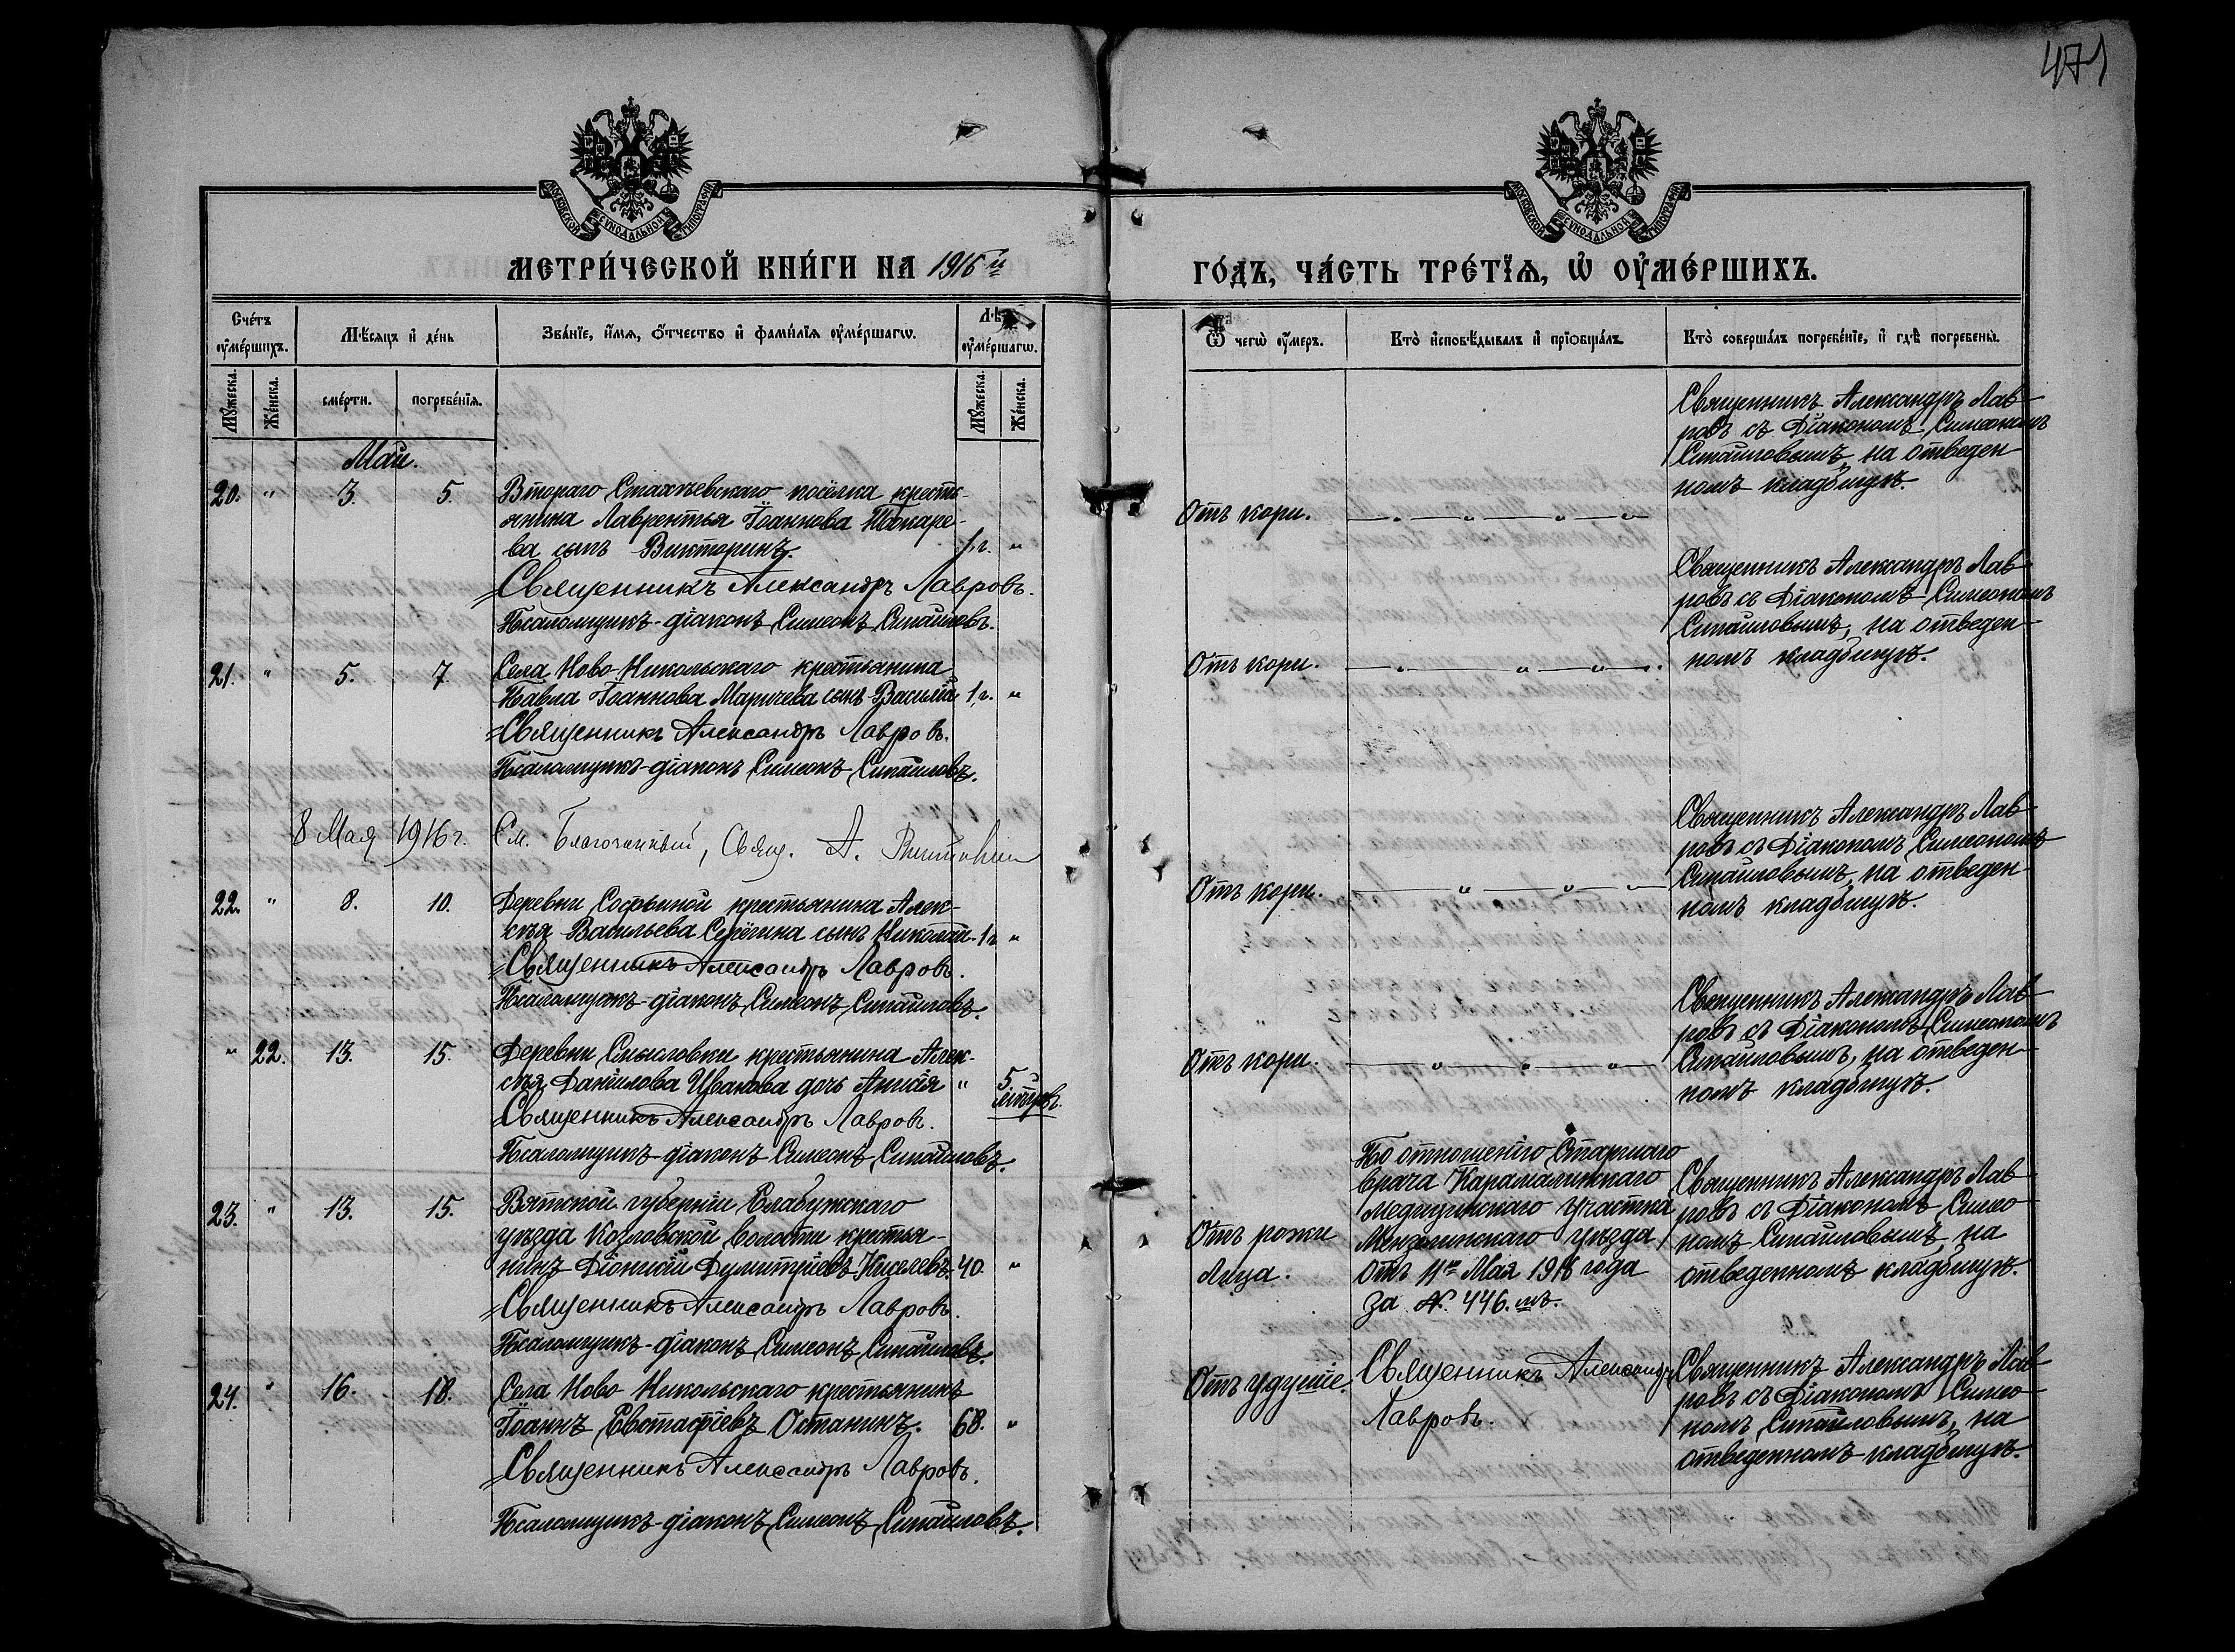 471
МОСКОВСКОЙ СѴНОДАЛЬНОЙ ТИПОГРАФІИ
МОСКОВСКОЙ СѴНОДАЛЬНОЙ ТИПОГРАФІИ
МЕТРИ́ЧЕСКОЙ КНИ́ГИ НА 1916 й
ГО́ДЪ, ЧА́СТЬ ТРЕ́ТЇѦ, Ѡ҆ ОУ҆МЕ́РШИХЪ.
Сче́тъ оуме́ршихъ.
Мѣ́сѧцъ и де́нь
Зва́нїе, и҆́мѧ, ѻ҆́тчество и҆ фами́лїѧ оу҆ме́ршагѡ.
Лѣ
оу҆ме́ршагѡ.
Ѿ чегѡ̀ оу҆́меръ.
Кто̀ и҆сповѣ́дывалъ и҆ прїѡбща́лъ.
Кто̀ соверша́лъ погребе́нїе, и҆ гдѣ̀ погребены̀.
Мꙋ́жеска.
Же́нска.
сме́рти.
погребе́нїѧ.
Мꙋ́жеска.
Же́нска.
Май.
20. " 3. 5. Втораго Стахѣевскаго посёлка кресть-
янина Лаврентья Іоаннова Токаре-
ва сынъ Викторинъ. 1 г. "
Священникъ Александръ Лавровъ.
Псаломщикъ-діаконъ Симеонъ Сипайловъ.
Отъ кори.
Священникъ Александръ Лав-
ровъ съ Діакономъ Симеономъ
Сипайловымъ, на отведен-
номъ кладбищѣ.
21. " 5. 7. Села Ново-Никольскаго крестьянина
Павла Іоаннова Маричева сынъ Василій 1 г. "
Священникъ Александръ Лавровъ.
Псаломщикъ-діаконъ Симеонъ Сипайловъ.
Отъ кори.
Священникъ Александръ Лав-
ровъ съ Діакономъ Симеономъ
Сипайловымъ, на отведен-
номъ кладбищѣ.
8 Мая 1916 г. См. Благочинный, Свящ. А.
22. " 8. 10. Деревни Софьиной крестьянина Алек-
сѣя Васильева Серёгина сынъ Николай 1 г. "
Священникъ Александръ Лавровъ.
Псаломщикъ-діаконъ Симеонъ Сипайловъ.
Отъ кори.
Священникъ Александръ Лав-
ровъ съ Діакономъ Симеономъ
Сипайловымъ, на отведен-
номъ кладбищѣ.
" 22. 13. 15. Деревни Смысловки крестьянина Алек-
сѣя Данилова Ивакова дочь Анисія " 5.
Священникъ Александръ Лавровъ.
Псаломщикъ-діаконъ Симеонъ Сипайловъ.
Отъ кори.
Священникъ Александръ Лав-
ровъ съ Діакономъ Симеономъ
Сипайловымъ, на отведен-
номъ кладбищѣ.
23. " 13. 15. Вятской губерніи Елабужскаго
уѣзда Козловской волости крестья-
нинъ Діонисій Димитріевъ Киселевъ. 40. "
Священникъ Александръ Лавровъ.
Псаломщикъ-діаконъ Симеонъ Сипайловъ.
Отъ рожи
лица.
По отношенію Старшаго
врача Карамалинскаго
Медицинскаго участка
Мензелинскаго уѣзда
отъ 11го Мая 1916 года
за № 446.мъ.
Священникъ Александръ Лав-
ровъ съ Діакономъ Симео-
номъ Сипайловымъ, на
отведенномъ кладбищѣ.
24. " 16. 18. Села Ново-Никольскаго крестьянинъ
Іоаннъ Евстафіевъ Останинъ. 68. "
Священникъ Александръ Лавровъ.
Псаломщикъ-діаконъ Симеонъ Сипайловъ.
Отъ удушіе.
Священникъ Александръ
Лавровъ.
Священникъ Александръ Лав-
ровъ съ Діакономъ Симео-
номъ Сипайловымъ, на
отведенномъ кладбищѣ.